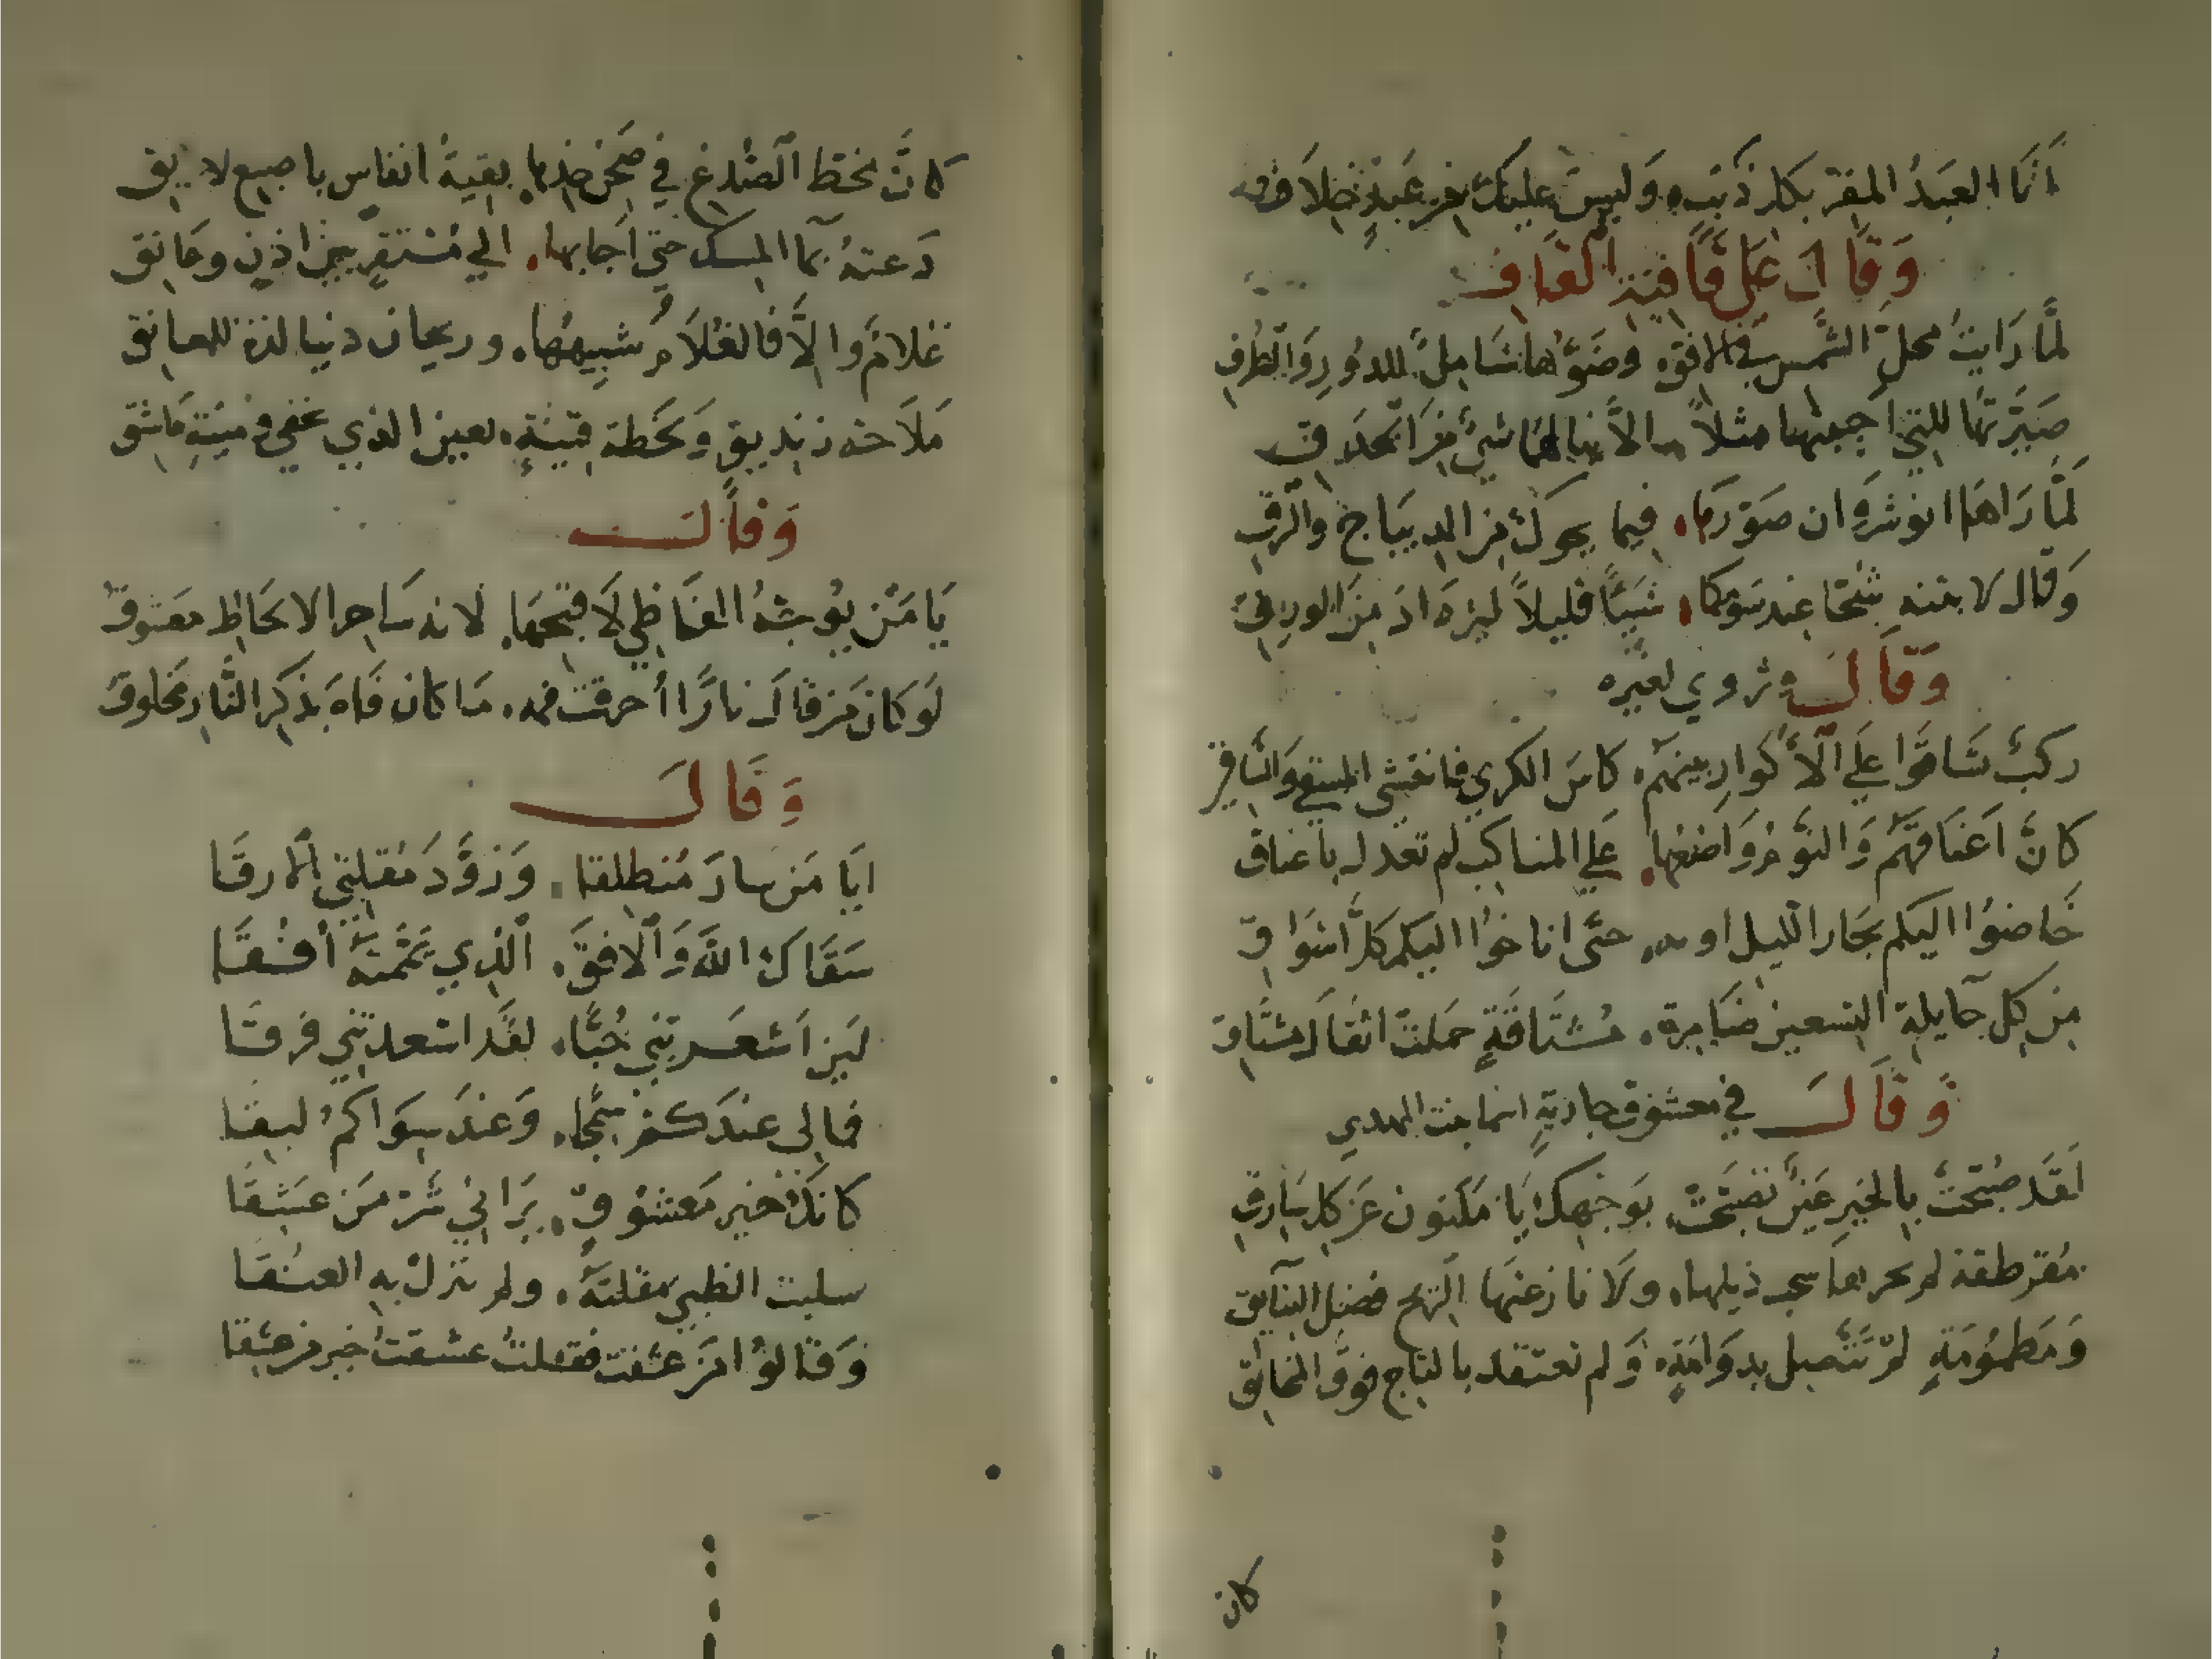 انا العبد المقر بكل ذنب وليس عليك من عبد خلاف
وقال على قافية القاف
لما رايت محل الشمس في الافق وضوها شامل للدور والطرق
صيرتها للتي احببتها مثلا اذ لا ينالهما شيء من الحدق
لما راها انوشروان صورها فيما يحوك من الديباج والسرق
وقال لابنته شحا عند سومكها شيئا قليلا ليزداد من الورق
وقال وتروي لغيره
ركب تساقوا على الاكوار بينهم كاس الكري فانتشى المسقي والساقي
كان اعناقهم والنوم واضعها علي المناكب لم تعدل باعناق
خاضوا اليكم بحار الليل حتى اناخوا اليكم كل اشواق
من كل جايلة النسعين ضامرة مشتاقة حملت اثقال مشتاق
وقال في معشوق جارية اسما بنت المهدي
لقد صبحت بالخير عين تصبحت بوجهك يا مكنون عن كل شارق
مقرطقة لم يحرها سحب ذيلها ولا نازعتها الريح فضل البنايق
ومطمومة لم تتصل بدوامة ولم تعتقد بالتاج فوق المخانق
كان
كان نخط الصدغ في صحن خدها بقية انقاس باصبع لايق
دعته بما المسك حتى اجابها الي مستقر بين اذن وعاتق
غلام والا فالغلام شبيهها وريحان دنيا لذة للمعانق
ملاحة زنديق ولحظة قينة بعين الذي يخفي ومنية عاشق
وقال
يا من يوجه الفاظي لاقبحها لانه ساحر الالحاظ معشوق
لو كان من قال نارا احرقت فمه ما كان فاه بذكر النار مخلوق
وقال
ايا من سار منطلقا وزود مقلتي الارقا
سقاك الله والافق الذي يممته افقا
لين اشعرتني حبا لقد اشعدتني فرقا
فمالي عندكم سمجا وعند سواكم لبقا
كانك خير معشوق يراني شر من عشقا
سلبت الظبي مقلته ولم تترك به العنقا
وقالوا من عشقت فقلت عشقت خير من عشقا